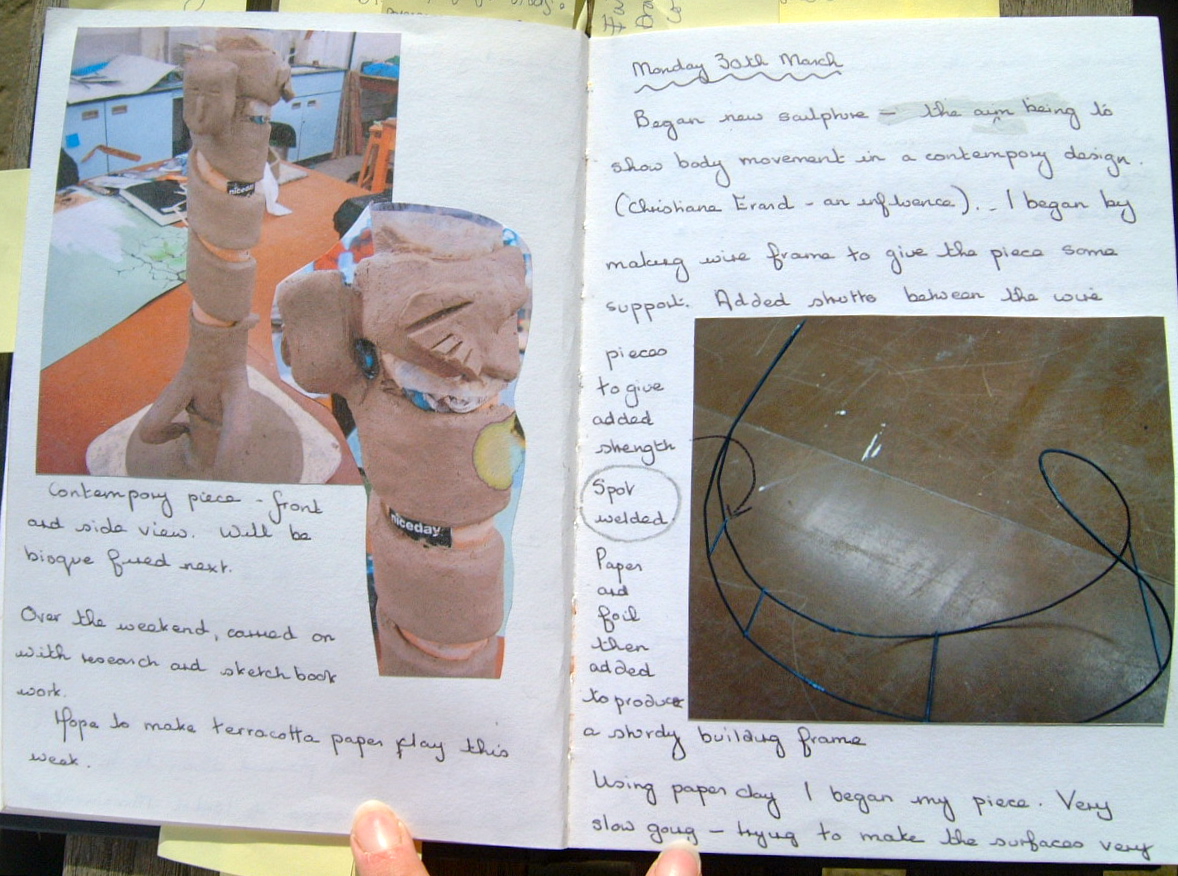 niceday
niceday
Contempory piece - front
and side view. Will be
bisque fired next.
Over the weekend, carried on
with research and sketchbook
work.
Hope to make terracotta paper clay this
week.
Monday 30th March
Began new sculpture - the aim being to
show body movement in a contempory design.
(Christiane Erard - an influence). - I began by
making wire frame to give the piece some
support. Added strutts between the wire
pieces
to give
added
strength
Spot
welded
Paper
and
foil
then
added
to produce
a sturdy building frame
Using paper clay I began my piece. Very
slow going - trying to make the surfaces very